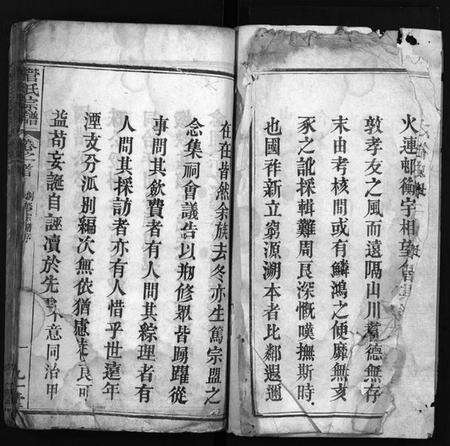 火連邨衡宇相望
敦孝友之風而遠隔山川耆德無存
末由考核間或有鱗鴻之便靡無亥
豕之訛採輯難周良深慨嘆撫斯時
也國祚新立窮源溯本者比鄰遐邇
在在皆然余族去冬亦生篤宗盟之
念集祠會議告以剏修眾皆踴躍從
事問其飲費者有人問其綜理者有
人問其採訪者亦有人惜乎世遠年
湮支分派別編次無依猶慮良可
益苟妄誕自誣瀆於先意同治甲
管氏宗譜
卷之首
一